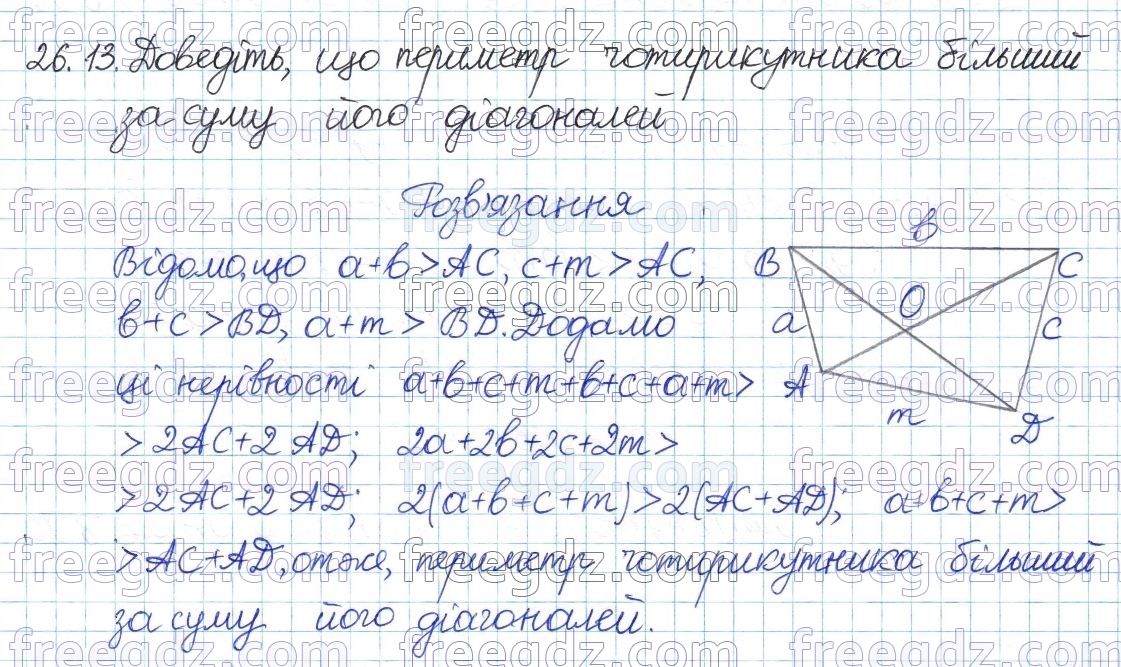 26.13. Доведіть, що периметр чотирикутника більший
за суму його діагоналей
Розв'язання
Відомо, що a+b>AC, c+m>AC,
b+c>BD, a+m>BD. Додамо
ці нерівності a+b+c+m+b+c+a+m>
>2AC+2AD; 2a+2b+2c+2m>
>2AC+2AD; 2(a+b+c+m)>2(AC+AD); a+b+c+m>
>AC+AD, отже, периметр чотирикутника більший
за суму його діагоналей.
b
B
C
O
a
c
A
m
D
freegdz.com